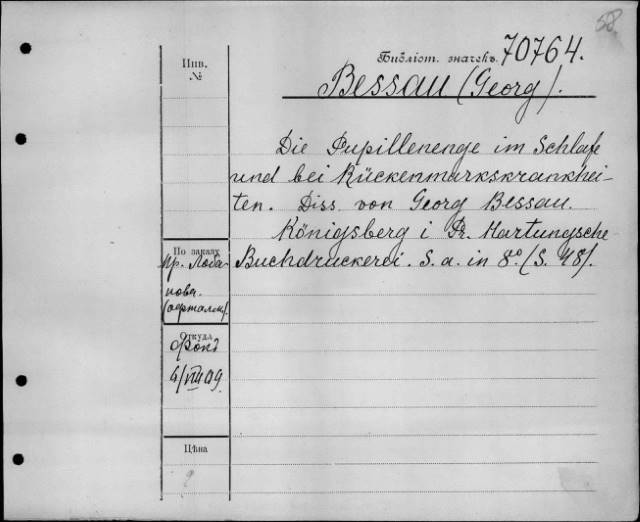 58
Инв.
№
Библіот. значекъ. 70764.
Bessau (Georg).
Die Pupillenenge im Schlafe
und bei Rückenmarkskrankhei-
ten. Diss. von Georg Bessau.
Königsberg i Pr. Hartungsche
Buchdruckerei. S. a. in 8° (S. 48).
По заказу
пр. Лоба-
нова.
(офталм).
Откуда
Фонд
4/VIII 09
Цѣна